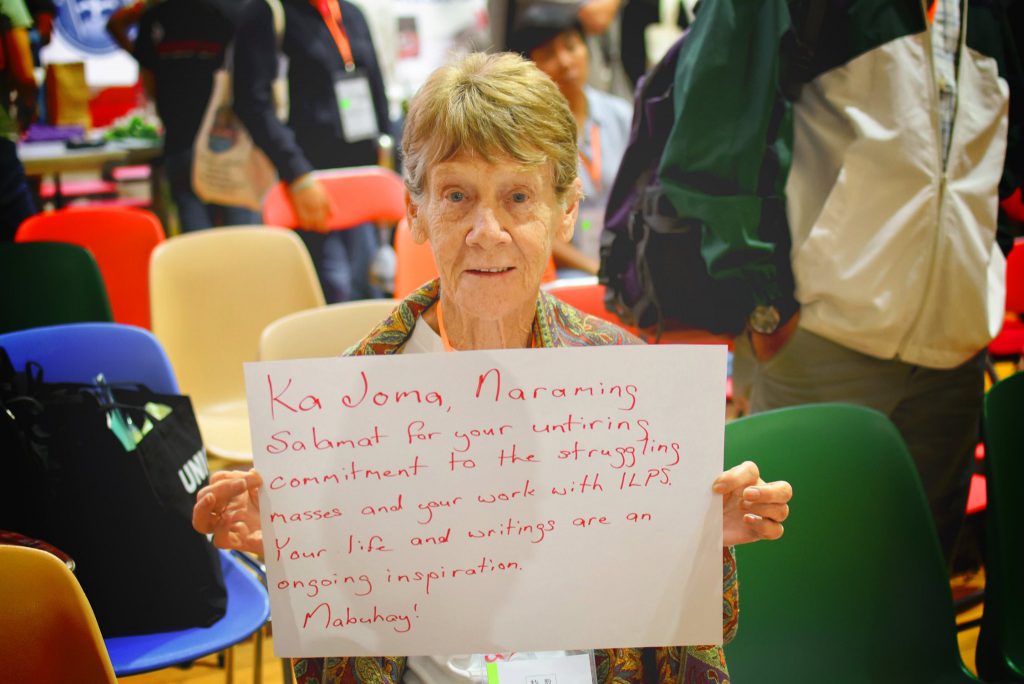 Ka Joma, Naraming
Salamat for your untiring
commitment to the struggling
masses and your work with ILPS.
Your life and writings are an
ongoing inspiration.
Mabuhay!
UNI